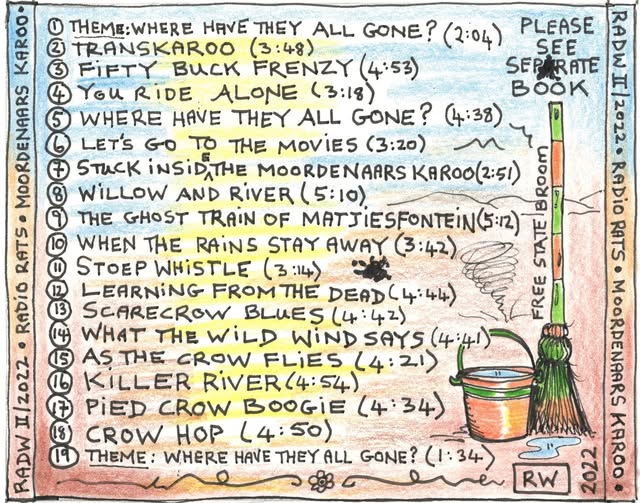 ① THEME: WHERE HAVE THEY ALL GONE? (2:04)
② TRANSKAROO (3:48)
③ FIFTY BUCK FRENZY (4:53)
④ YOU RIDE ALONE (3:18)
⑤ WHERE HAVE THEY ALL GONE? (4:38)
⑥ LET'S GO TO THE MOVIES (3:20)
⑦ STUCK INSIDE THE MOORDENAARS KAROO (2:51)
⑧ WILLOW AND RIVER (5:10)
⑨ THE GHOST TRAIN OF MATJIESFONTEIN (5:12)
⑩ WHEN THE RAINS STAY AWAY (3:42)
⑪ STOEP WHISTLE (3:14)
⑫ LEARNING FROM THE DEAD (4:44)
⑬ SCARECROW BLUES (4:42)
⑭ WHAT THE WILD WIND SAYS (4:41)
⑮ AS THE CROW FLIES (4:21)
⑯ KILLER RIVER (4:54)
⑰ PIED CROW BOOGIE (4:34)
⑱ CROW HOP (4:50)
⑲ THEME: WHERE HAVE THEY ALL GONE? (1:34)
PLEASE
SEE
SEPARATE
BOOK
FREE STATE BROOM
RW
2022
RADW II/2022 • RADIO RATS • MOORDENAARS KAROO •
RADW II/2022 • RADIO RATS • MOORDENAARS KAROO •